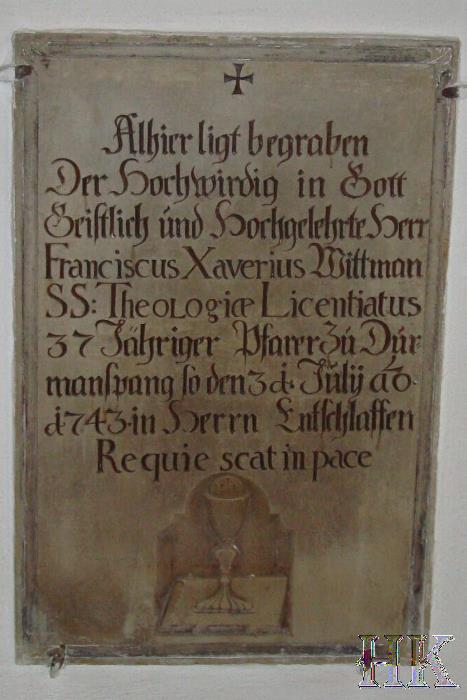 Alhier ligt begraben
Der Hochwirdig in Gott
Geistlich und Hochgelehrte Herr
Franciscus Xaverius Wittman
SS: Theologiæ Licentiatus
37 Jähriger Pfarer Zu Dür=
manspang so den 3t. Julij ao.
1743. in Herrn Entschlaffen
Requie scat in pace
HK